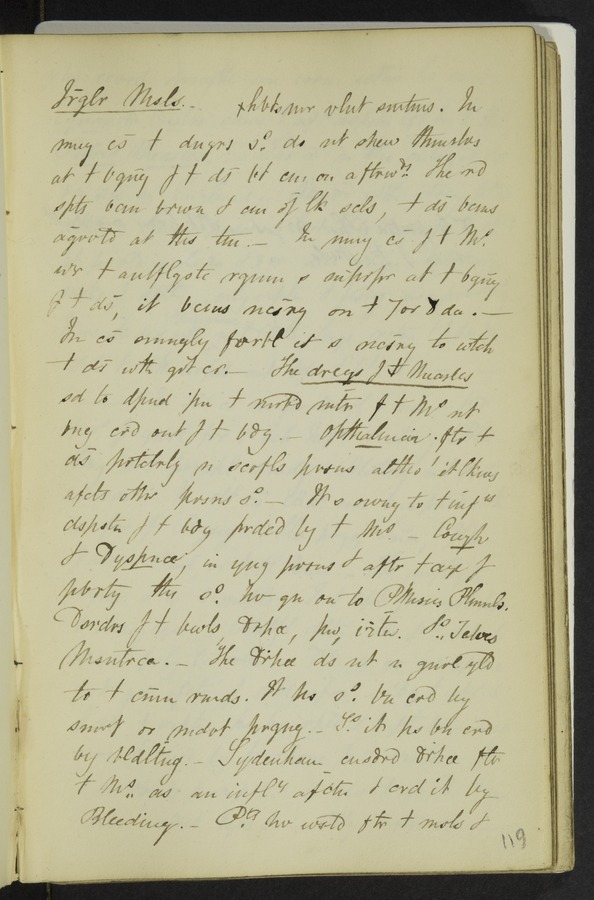 Irglr Msls. - xhbts mr vlnt smtms. In
mny cs t dngrs so. do nt shew thmslvs
at t bgng f t ds bt cm on aftrwds. The rd
spts bcm brown & cm of lk scls, t ds bcms
agrvtd at ths tm. - In mny cs f t Ms.
wr t antflgstc rgmn s mprpr at t bgng
f t ds, it bcms ncsry on t 7 or 8 da. -
In cs smngly fvrbl it s ncsry to wtch
t ds wth grt cr. - The dregs f t Measles
sd to dpnd pn t mrbd mtr f t Ms nt
bng crd out f t bdy. - Opthalmia ftr t
ds prtclrly n scrfls prsns altho' it lkws
afcts othr prsns so. - It s owng to t infl
dspstn f t bdy prdcd by t Ms - Cough
& Dyspnea, in yng prsns & aftr t age f
pbrty ths so. hv gn on to Pthisis Plmnls.
Dsrdrs f t bwls, Drhea,
Msntrca. - The Drhea ds nt n gnrl yld
to t cmn rmds. It hs so. bn crd by
smrt or mdrt prgng. - So. it hs bn crd
by bldltng. - Sydenham cnsdrd Drhea ftr
t Ms. as an infl afctn & crd it by
Bleeding. - Pts hv wstd ftr t msls &
119